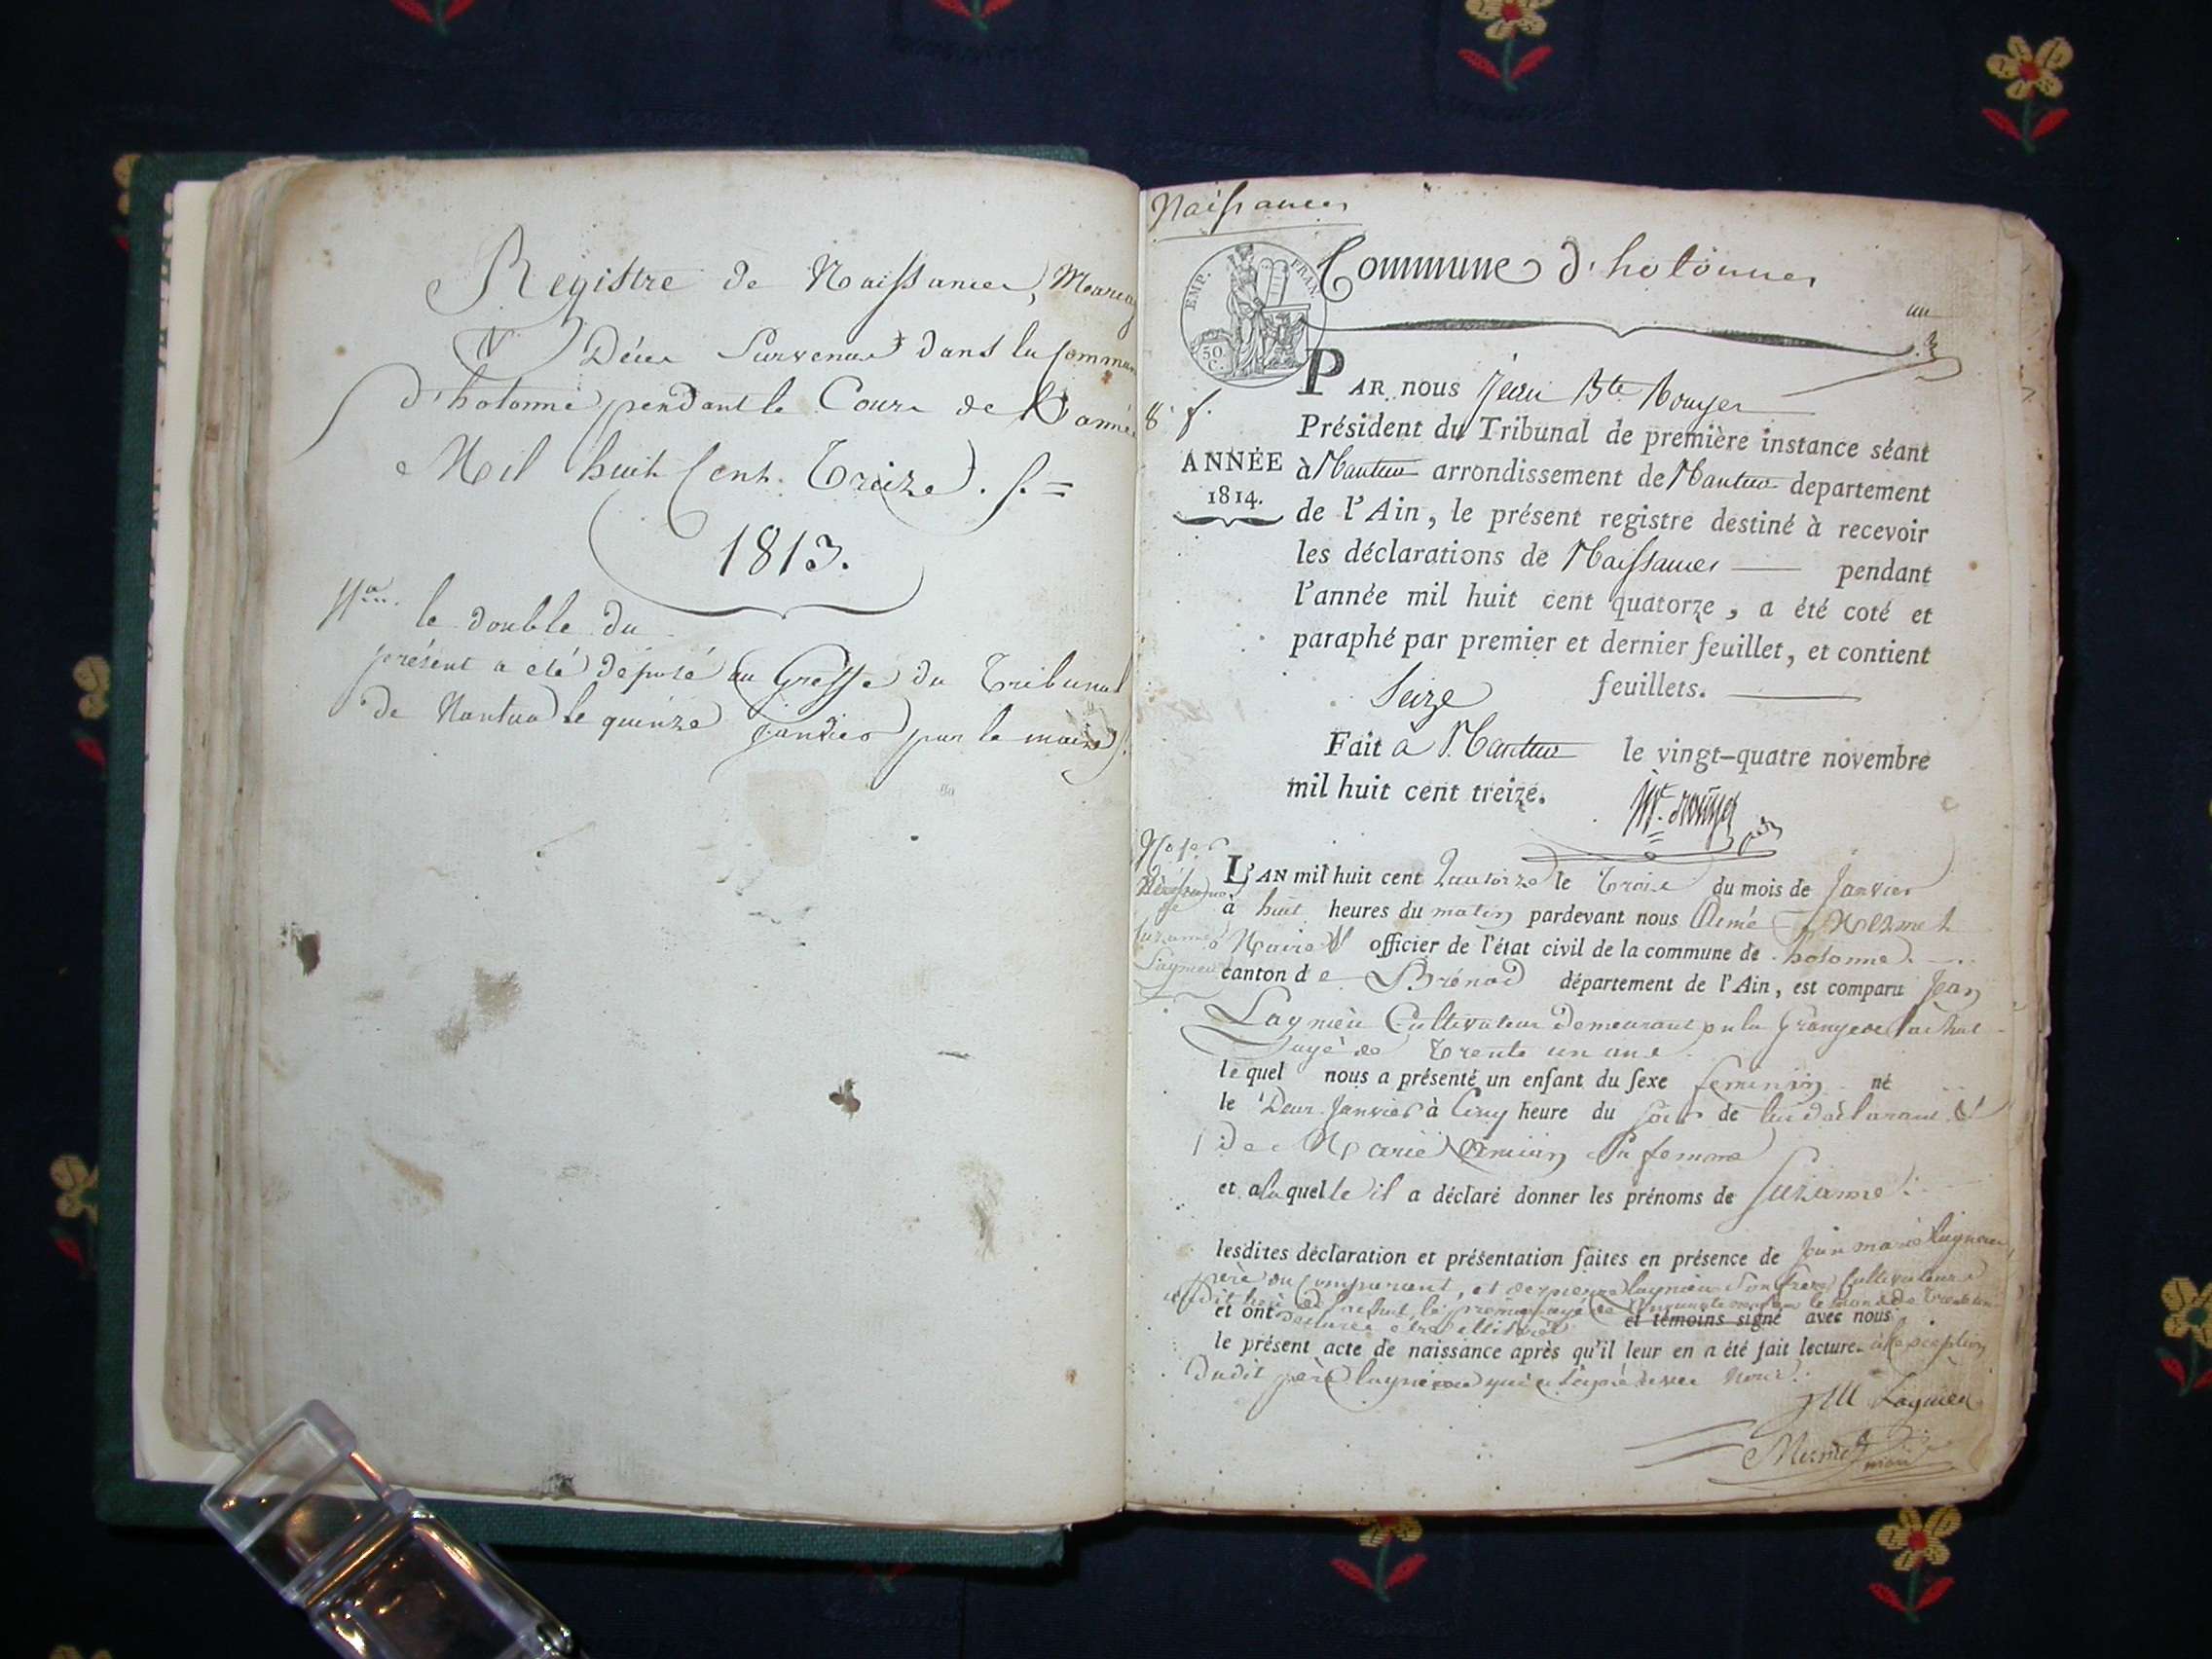 Registre de Naissances, Mariag
& Décès Survenus dans la Commun
d'hotonne pendant le Cours de L'année
Mil huit Cent Treize.
1813.
le double du
présent a été déposé au Greffe du Tribunal
de Nantua le quinze janvier par le maire
Naissances
Commune d'hotonnes
EMP. FRAN.
50 C.
un
PAR nous Jean Bte Rouyer
8. f.
Président du Tribunal de première instance séant
ANNÉE
1814.
à Nantua arrondissement de Nantua departement
de l'Ain, le présent registre destiné à recevoir
les déclarations de Naissances pendant
l'année mil huit cent quatorze, a été coté et
paraphé par premier et dernier feuillet, et contient
Seize feuillets.
Fait à Nantua le vingt-quatre novembre
mil huit cent treize.
Naissance
de
Suzanne
Laynieu
L'AN mil huit cent Quatorze le Trois du mois de Janvier
à huit heures du matin pardevant nous Aimé Mermet
Maire officier de l'état civil de la commune de hotonne
canton de Brénod département de l'Ain, est comparu Jean
Laynieu Cultivateur demeurant en la Grange de
agé de Trente un ans
lequel nous a présenté un enfant du sexe feminin né
le Deux Janvier à Cinq heure du soir de lui déclarant &
de Marie sa femme
et a laquelle il a déclaré donner les prénoms de Suzanne.
lesdites déclaration et présentation faites en présence de Jean marie laynieu
père du Comparant, et de pierre laynieu son frère Cultivateurs
le premier agé de le second de Trente
et ont déclaré être illitérés et témoins signé avec nous
le présent acte de naissance après qu'il leur en a été fait lecture. à l'exception
dudit père laynieu qui a signé avec Nous.
JM Laynieu
Mermet maire